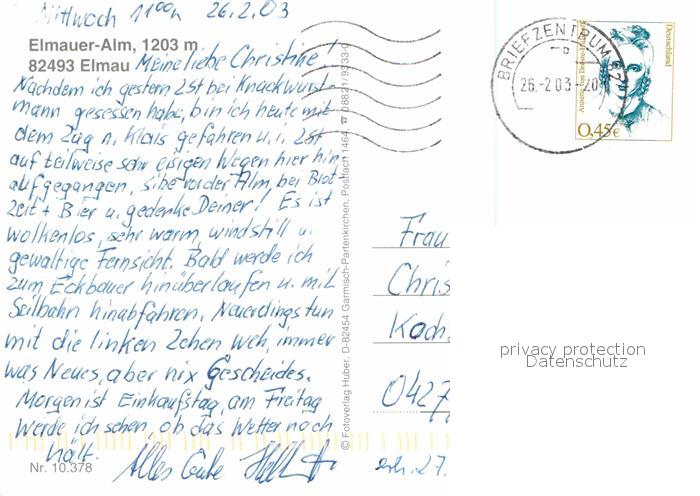 Mittwoch 11ººh 26.2.03
Elmauer-Alm, 1203 m
82493 Elmau
Meine liebe Christine!
Nachdem ich gestern 2St bei Knackwurst-
mann gesessen habe, bin ich heute mit
dem Zug n. Klais gefahren u. i. 2St
auf teilweise sehr eisigen Wegen hier hin-
aufgegangen, sitze vor der Alm, bei Brot-
zeit + Bier u. gedenke Deiner! Es ist
wolkenlos, sehr warm, windstill u.
gewaltige Fernsicht. Bald werde ich
zum Eckbauer hinüberlaufen u. mit
Seilbahn hinabfahren. Neuerdings tun
mit die linken Zehen weh, immer
was Neues, aber nix Gescheides.
Morgen ist Einkaufstag, am Freitag
werde ich sehen, ob das Wetter noch
hält.
Alles Gute
Nr. 10.378
© Fotoverlag Huber, D-82454 Garmisch-Partenkirchen, Postfach 1464, ☎ 08821/9333-0
BRIEFZENTRUM 82
26.-2.03-20
Deutschland
0,45€
Frau
Chris
Koch
0427
erh. 27.
privacy protection
Datenschutz